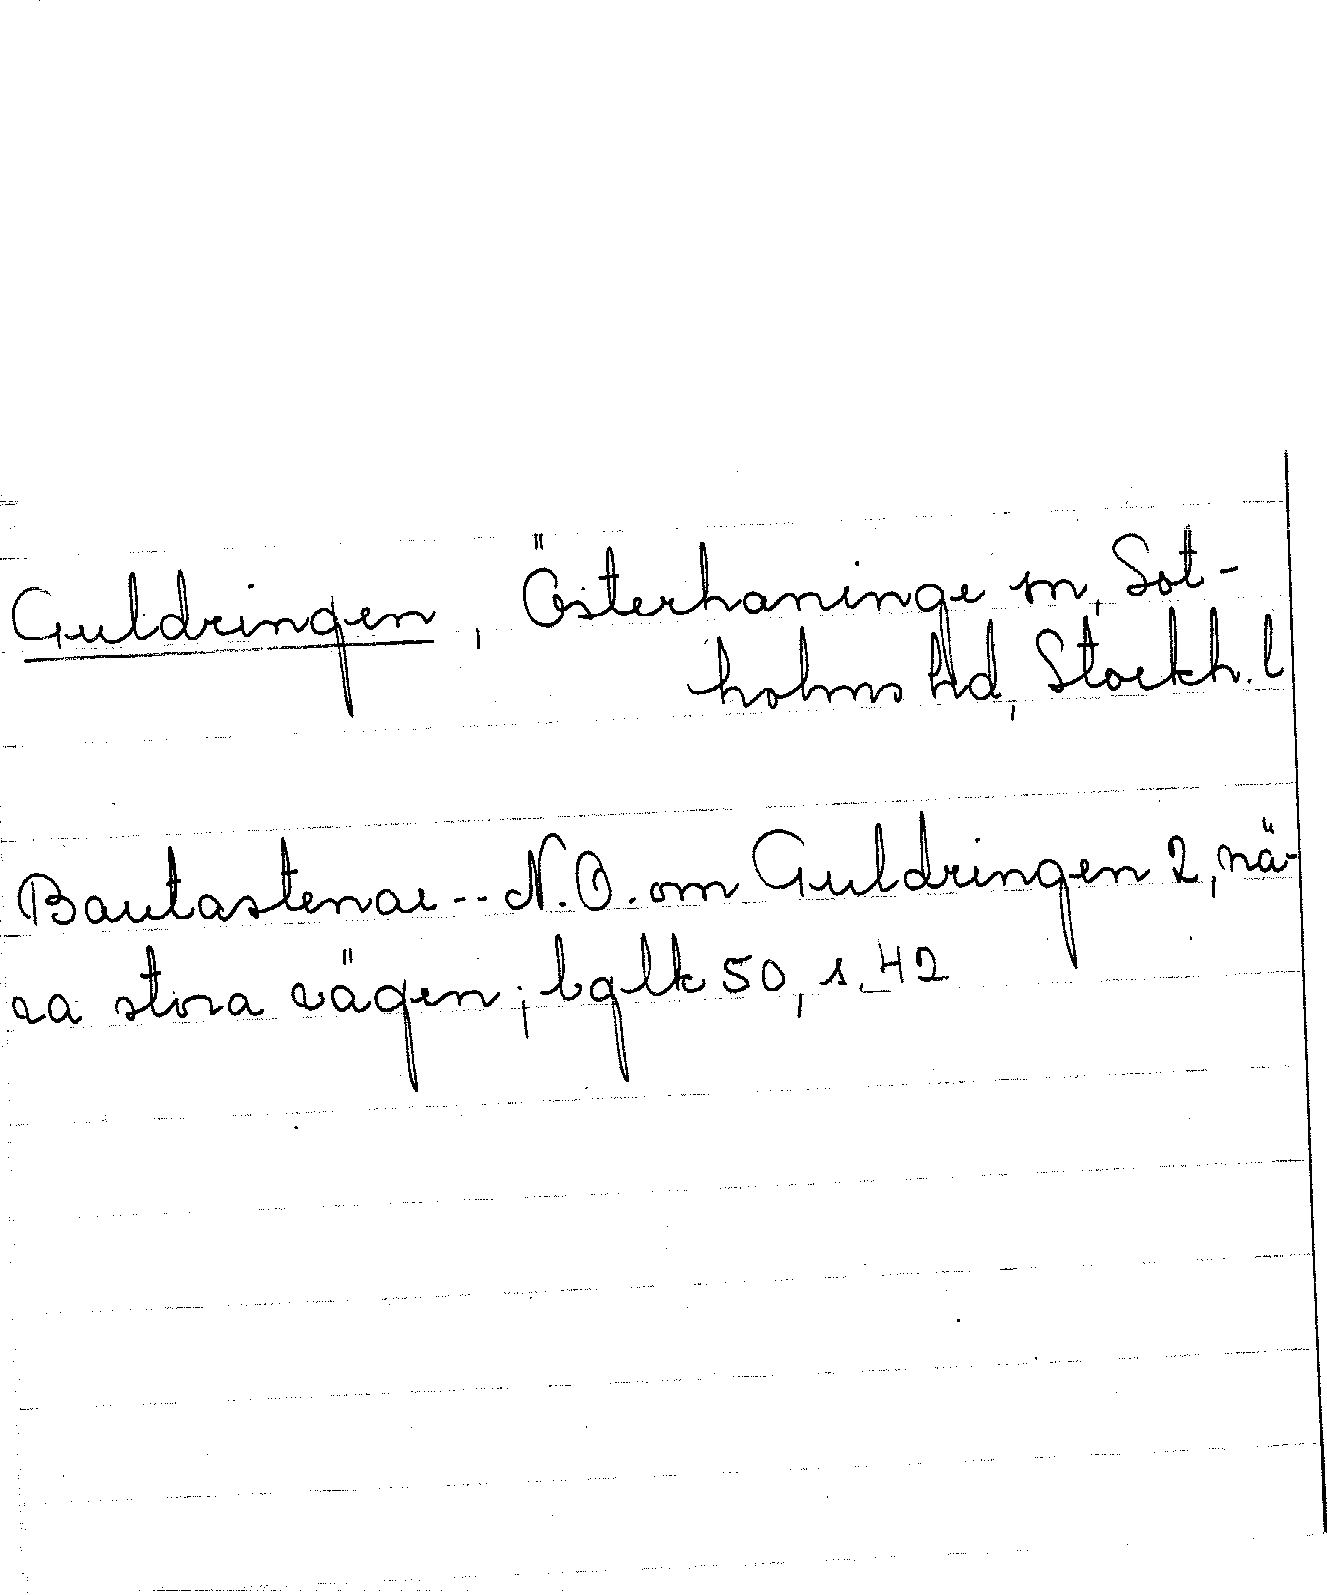 Guldringen, Österhaninge sn, Sot-
holms hd, Stockh. l
Bautastenar -- N.O. om Guldringen 2, nä-
ra stora vägen; bglk 50, s. 42